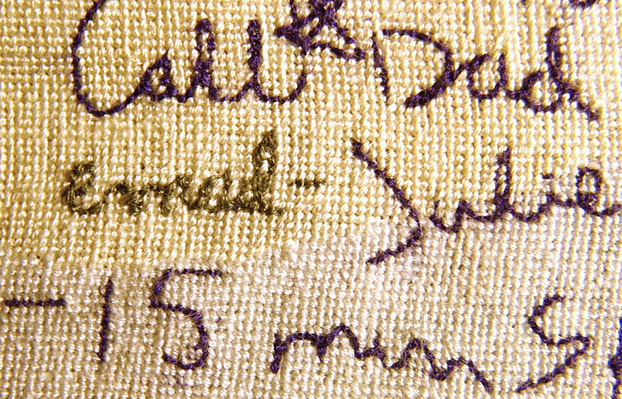 Call Dad
email - Julie
- 15 min